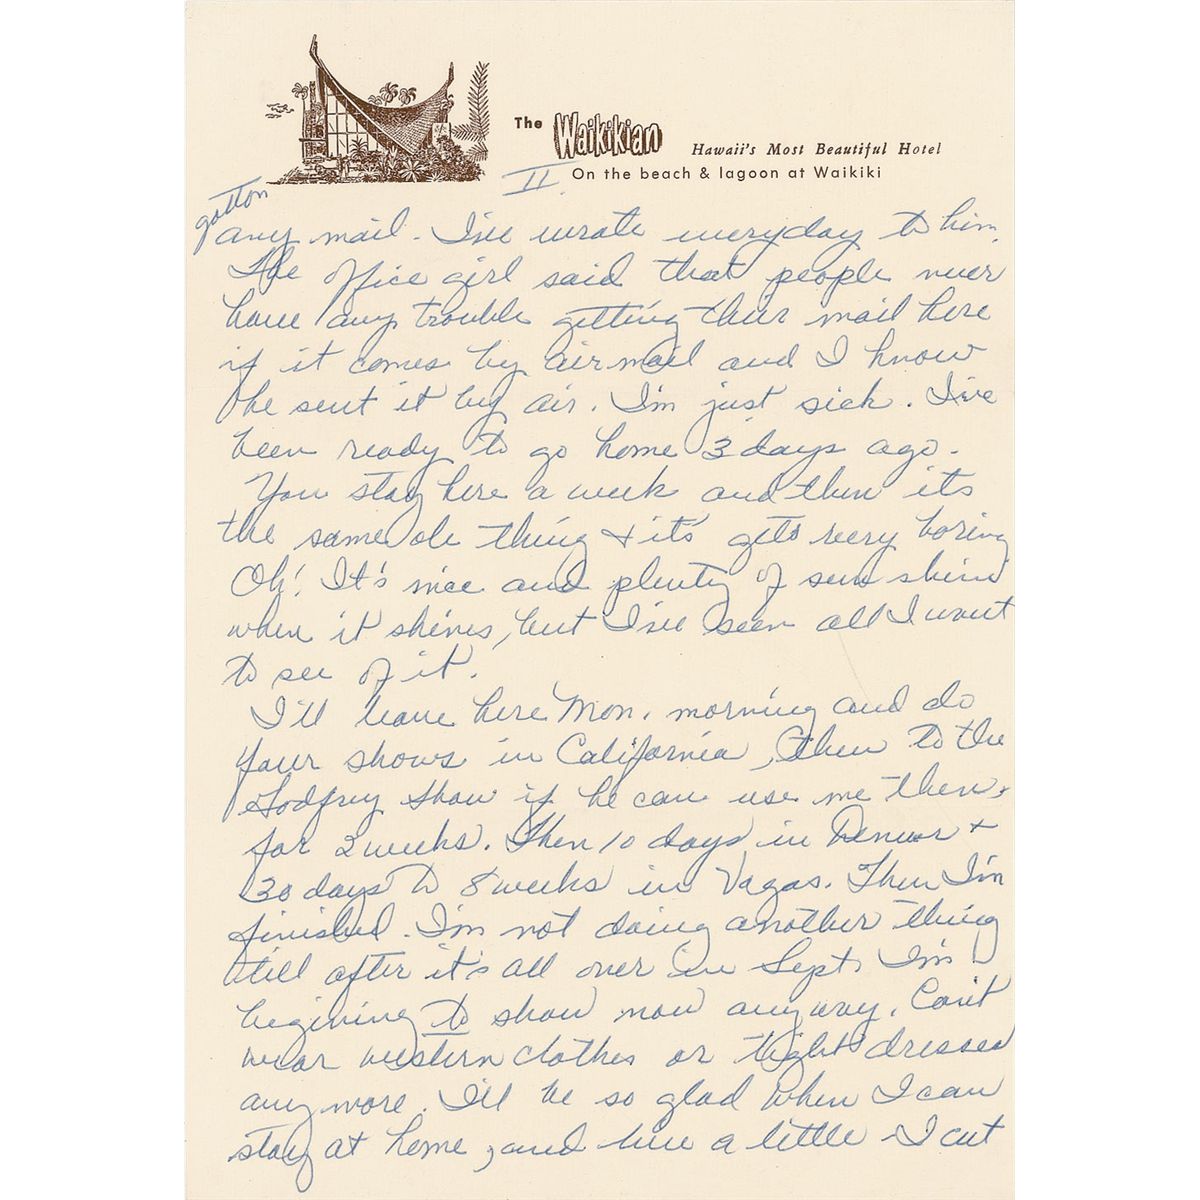 The Waikikian Hawaii's Most Beautiful Hotel
On the beach & lagoon at Waikiki
II
gotton
any mail. I've wrote everyday to him.
The office girl said that people never
have any trouble getting their mail here
if it comes by airmail and I know
he sent it by air. I'm just sick. I've
been ready to go home 3 days ago.
You stay here a week and then its
the same ole thing & it's gets very boring
Oh! It's nice and plenty of sun shine
when it shines, but I've seen all I want
to see of it.
I'll leave here Mon. morning and do
your shows in California, then to the
Godfrey Show if he can use me then,
for 2 weeks. Then 10 days in Denver +
30 days to 8 weeks in Vagas. Then I'm
finished. I'm not doing another thing
till after it's all over in Sept. I'm
begining to show now anyway. Can't
wear western clothes or tight dresses
any more. I'll be so glad when I can
stay at home, and live a little - I cut